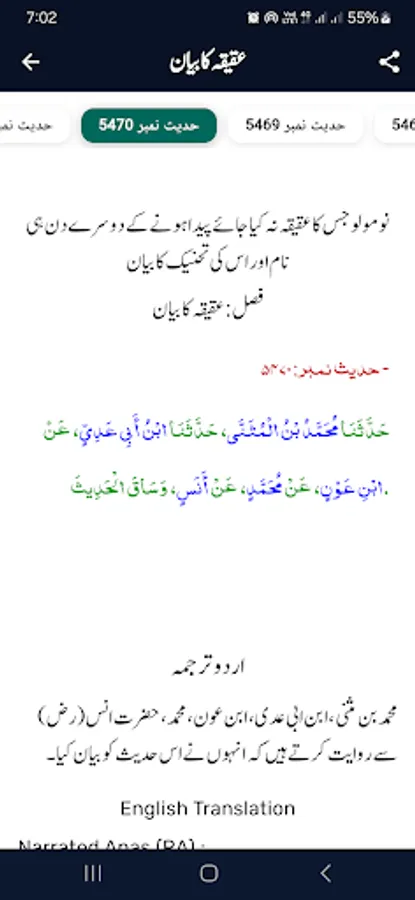 7:02 55%
عقیقہ کا بیان
حدیث نمبر 5470 حدیث نمبر 5469 546
نومولو جس کا عقیقہ نہ کیا جائے پیدا ہونے کے دوسرے دن ہی
نام اور اس کی تحنیک کا بیان
فصل: عقیقہ کا بیان
- حدیث نمبر: ۵۴۷۰
حَدَّثَنَا مُحَمَّدُ بْنُ الْمُثَنَّى، حَدَّثَنَا ابْنُ أَبِي عَدِيٍّ، عَنْ
ابْنِ عَوْنٍ، عَنْ مُحَمَّدٍ، عَنْ أَنَسٍ، وَسَاقَ الْحَدِيثَ.
اردو ترجمہ
محمد بن مثنی، ابن ابی عدی، ابن عون، محمد، حضرت انس (رض)
سے روایت کرتے ہیں کہ انہوں نے اس حدیث کو بیان کیا۔
English Translation
Narrated Anas (RA) :